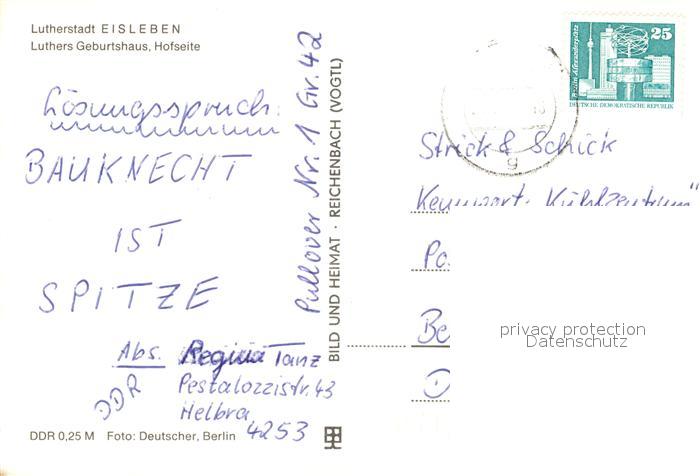 Lutherstadt EISLEBEN
Luthers Geburtshaus, Hofseite
Lösungsspruch:
BAUKNECHT
IST
SPITZE
Abs. Regina Tanz
Pestalozzistr. 43
Helbra
4253
DDR
DDR 0,25 M Foto: Deutscher, Berlin
Pullover Nr. 1 Gr. 42
BILD UND HEIMAT · REICHENBACH (VOGTL)
25
Berlin, Alexanderplatz
DEUTSCHE DEMOKRATISCHE REPUBLIK
g
Strick & Schick
Kennwort: Kühlzentrum"
Po
Be
privacy protection
Datenschutz